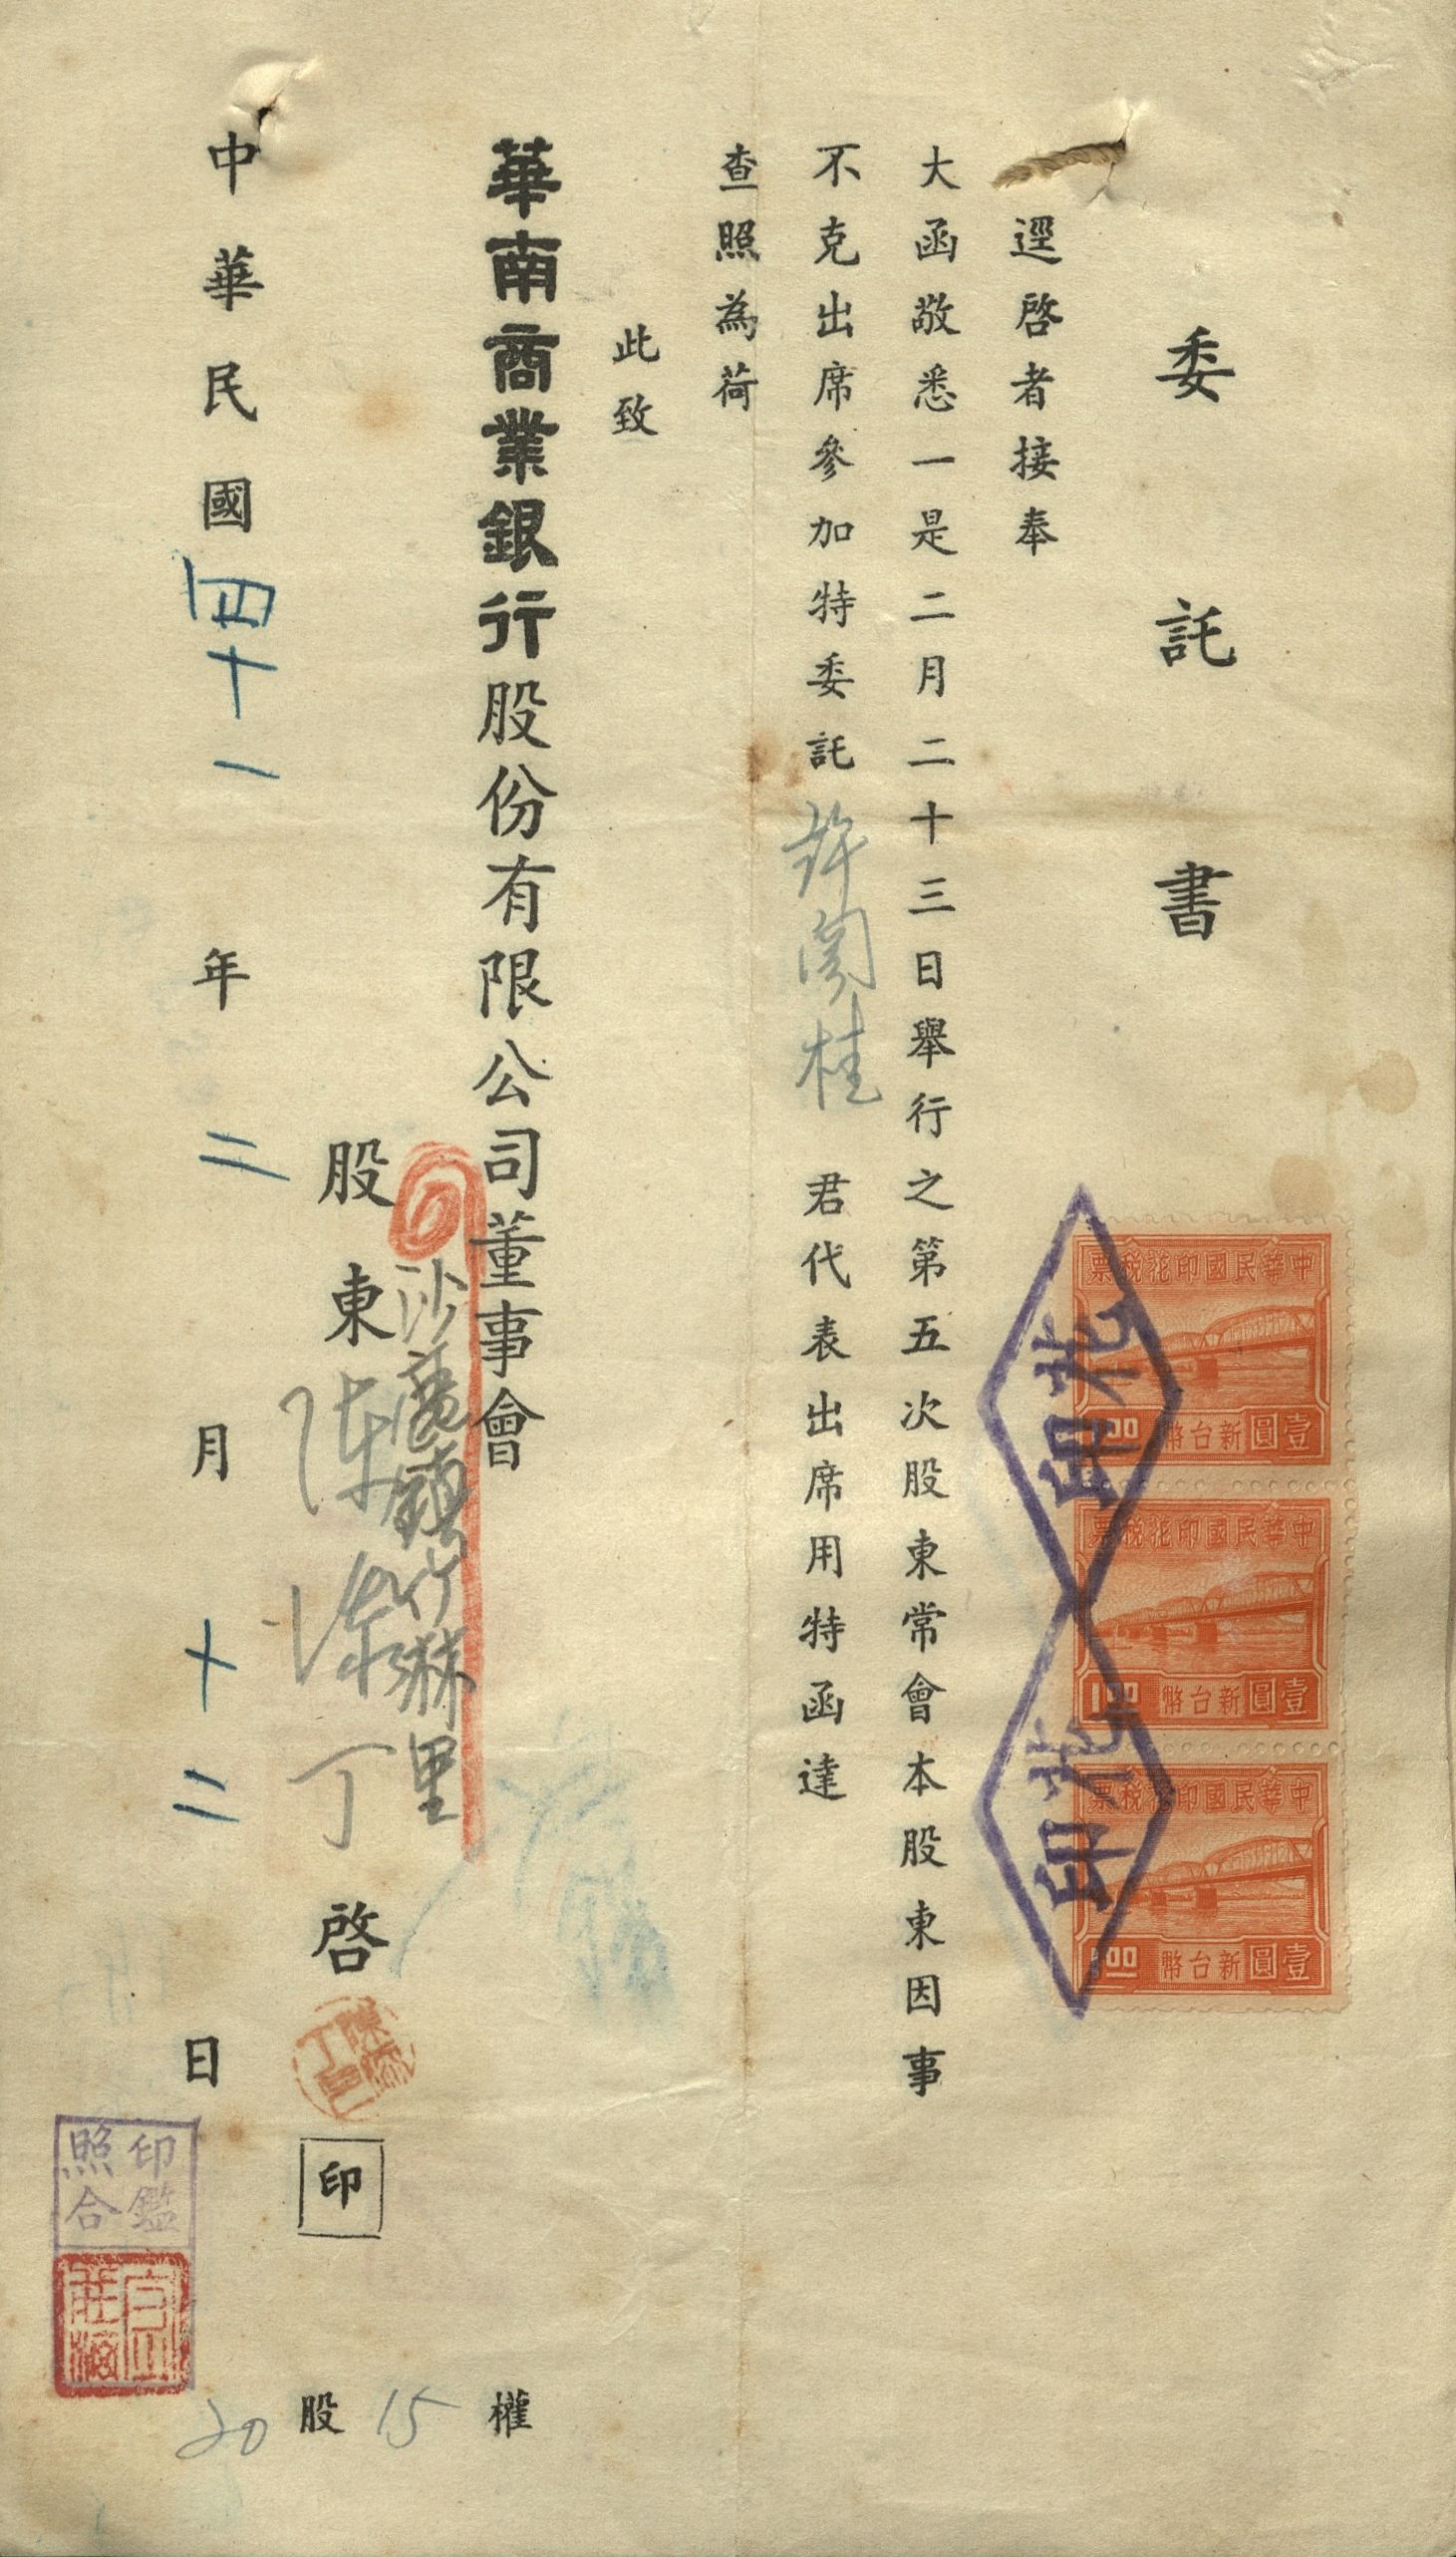 委託書
逕啓者接奉
大函敬悉一是二月二十三日舉行之第五次股東常會本股東因事
不克出席參加特委託許閔桂君代表出席用特函達
查照為荷
此致
華南商業銀行股份有限公司董事會
沙鹿鎮竹林里
股東陳添丁啓
印
中華民國四十一年二月十二日
20股15權
中華民國印花稅票
壹圓新台幣1.00
中華民國印花稅票
壹圓新台幣1.00
中華民國印花稅票
壹圓新台幣1.00
花印
花印
陳添丁印
印鑑照合